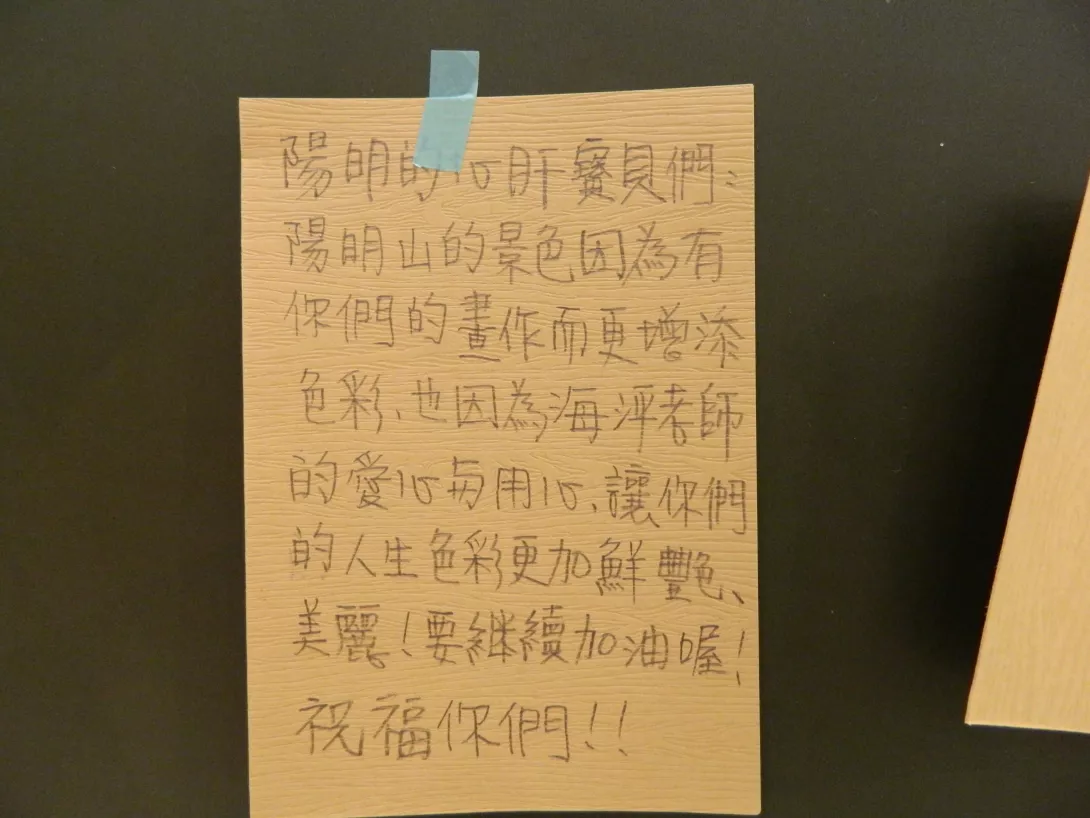 陽明的心肝寶貝們:
陽明山的景色因為有
你們的畫作而更增添
色彩、也因為海泙老師
的愛心与用心、讓你們
的人生色彩更加鮮艷、
美麗!要繼續加油喔!
祝福你們!!